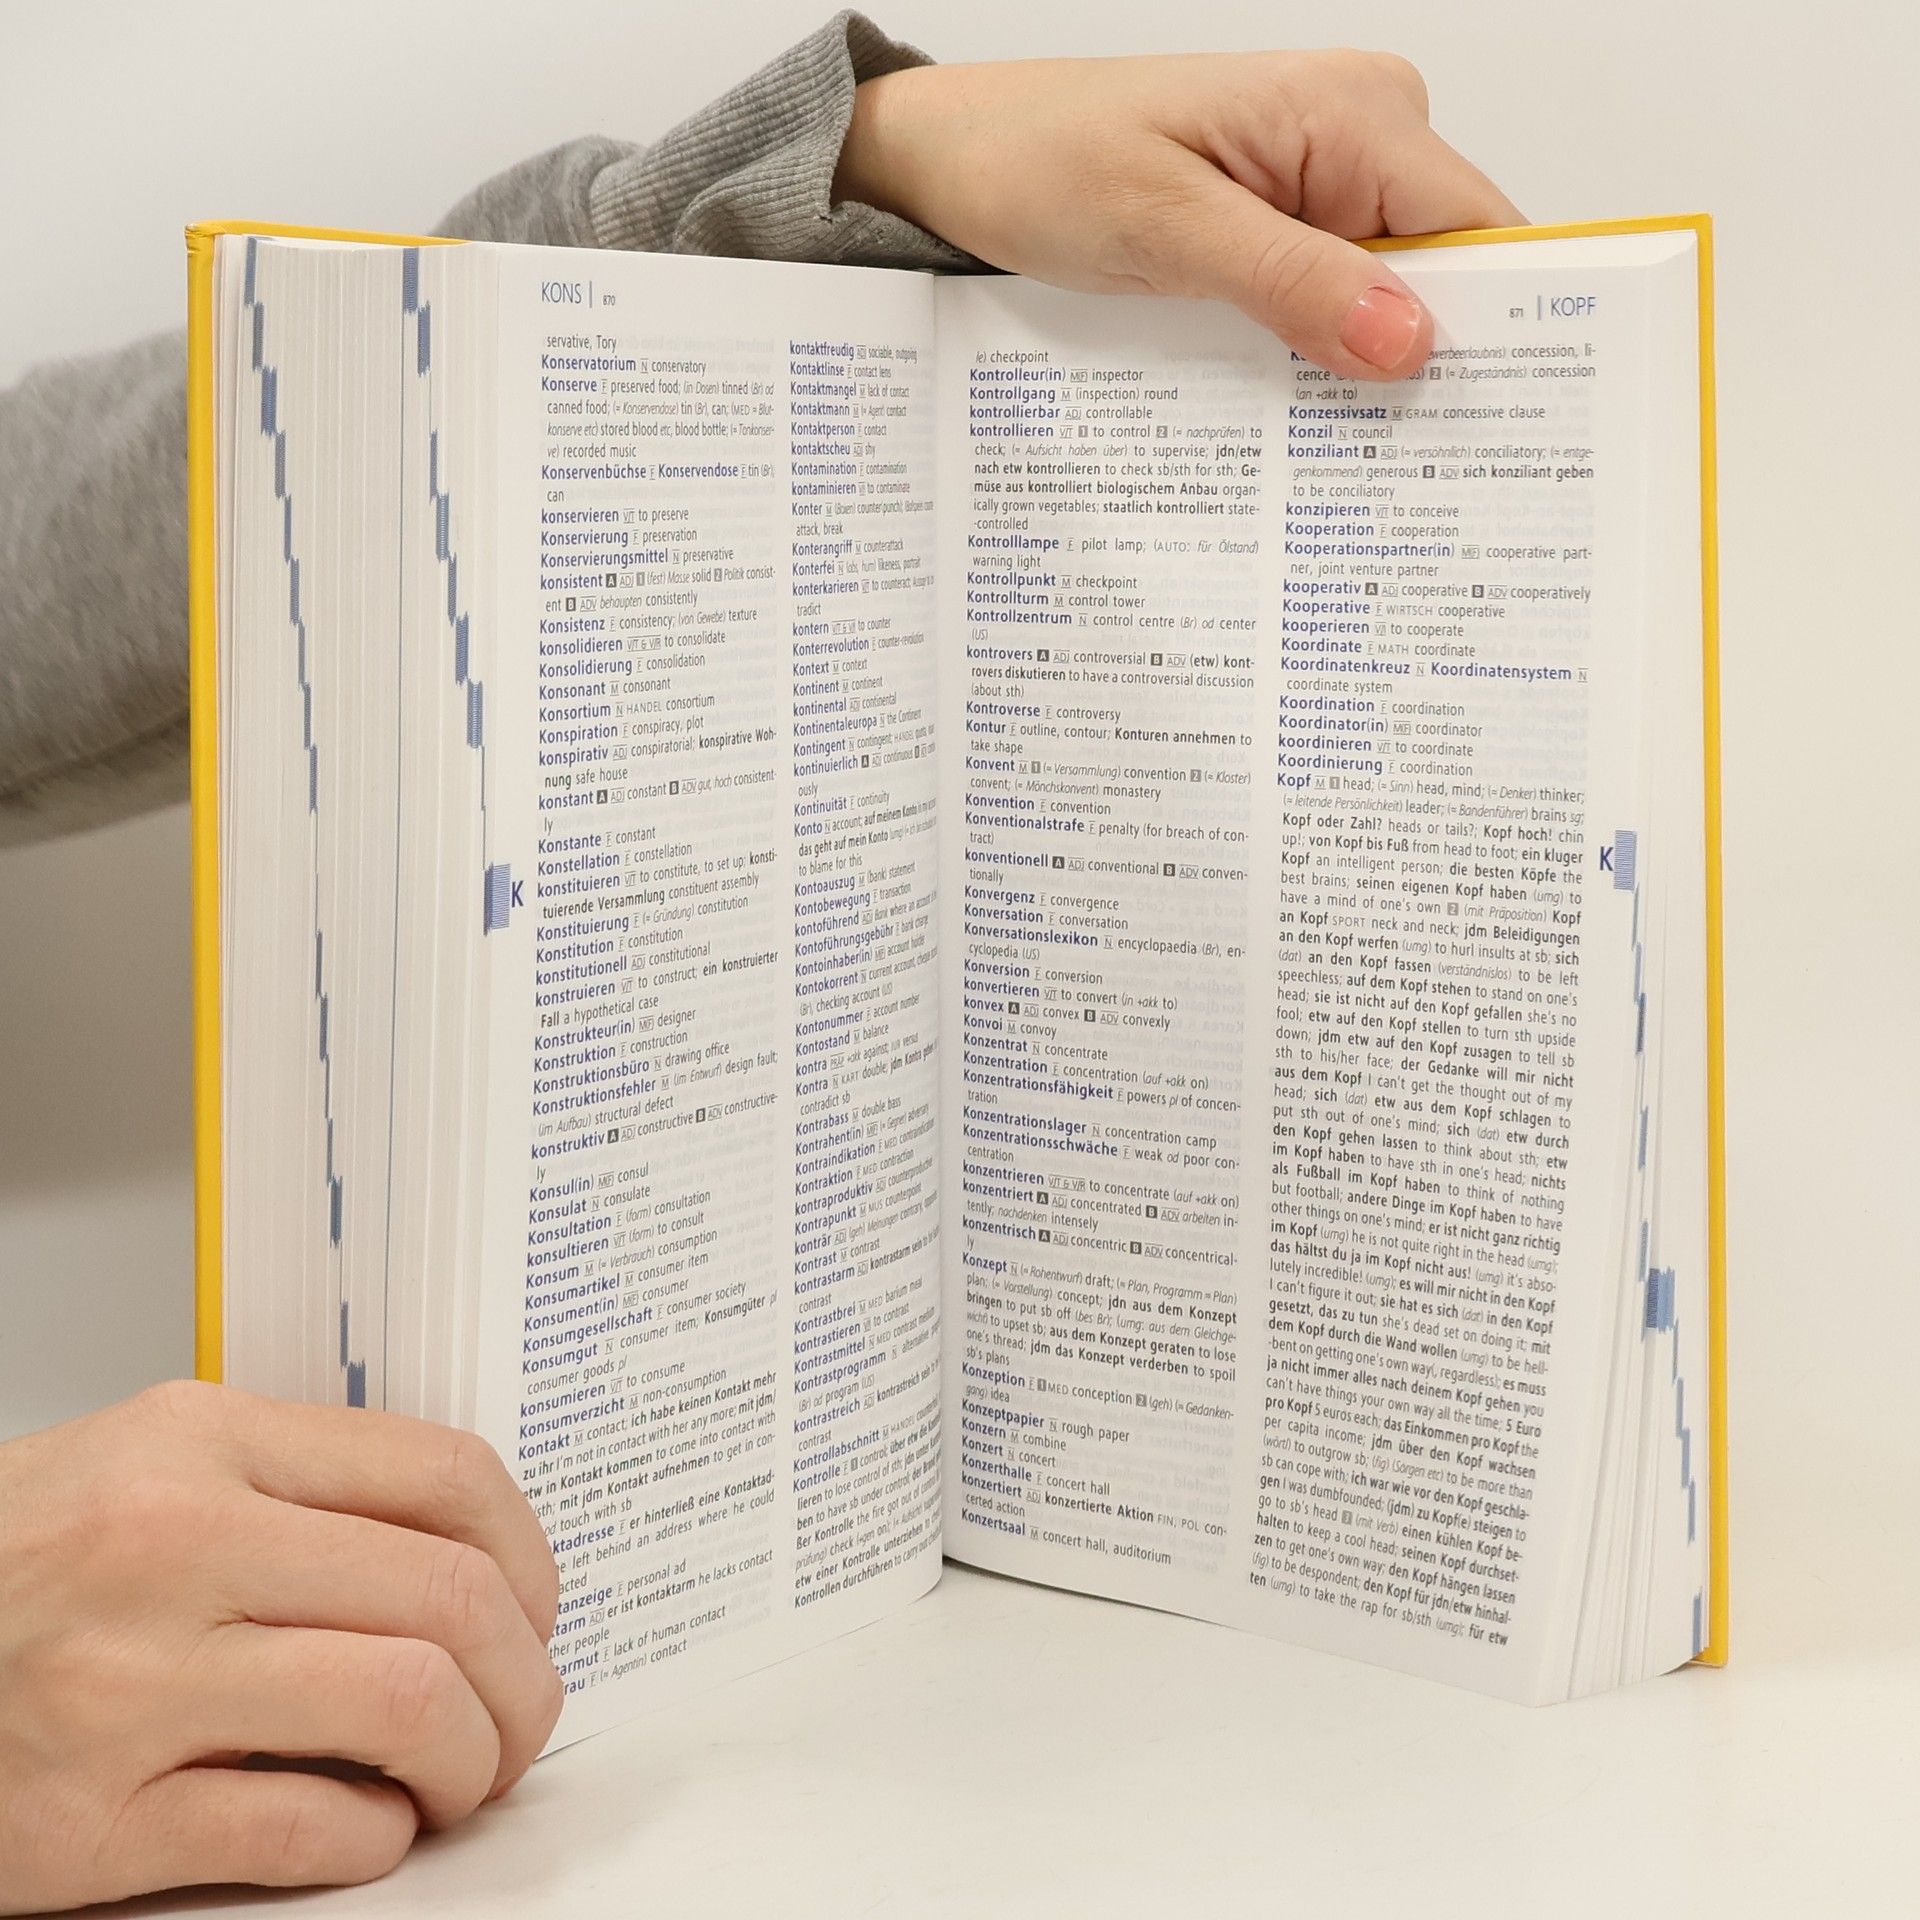 KONS | 870
servative, Tory
Konservatorium N conservatory
Konserve F preserved food; (in Dosen) tinned (Br) od
canned food; (= Konservendose) tin (Br), can; (MED = Blut-
konserve etc) stored blood etc, blood bottle; (= Tonkonser-
ve) recorded music
Konservenbüchse F Konservendose F tin (Br),
can
konservieren V/T to preserve
Konservierung F preservation
Konservierungsmittel N preservative
konsistent A ADJ 1 (fest) Masse solid 2 Politik consist-
ent B ADV behaupten consistently
Konsistenz F consistency; (von Gewebe) texture
konsolidieren V/T & V/R to consolidate
Konsolidierung F consolidation
Konsonant M consonant
Konsortium N HANDEL consortium
Konspiration F conspiracy, plot
konspirativ ADJ conspiratorial; konspirative Woh-
nung safe house
konstant A ADJ constant B ADV gut, hoch consistent-
ly
Konstante F constant
Konstellation F constellation
konstituieren V/T to constitute, to set up; konsti-
tuierende Versammlung constituent assembly
Konstituierung F (= Gründung) constitution
Konstitution F constitution
konstitutionell ADJ constitutional
konstruieren V/T to construct; ein konstruierter
Fall a hypothetical case
Konstrukteur(in) M(F) designer
Konstruktion F construction
Konstruktionsbüro N drawing office
Konstruktionsfehler M (im Entwurf) design fault;
(im Aufbau) structural defect
konstruktiv A ADJ constructive B ADV constructive-
ly
Konsul(in) M(F) consul
Konsulat N consulate
Konsultation F (form) consultation
konsultieren V/T (form) to consult
Konsum M (= Verbrauch) consumption
Konsumartikel M consumer item
Konsument(in) M(F) consumer
Konsumgesellschaft F consumer society
Konsumgut N consumer item; Konsumgüter pl
consumer goods pl
konsumieren V/T to consume
Konsumverzicht M non-consumption
Kontakt M contact; ich habe keinen Kontakt mehr
zu ihr I'm not in contact with her any more; mit jdm/
etw in Kontakt kommen to come into contact with
/sth; mit jdm Kontakt aufnehmen to get in con-
od touch with sb
ktadresse F er hinterließ eine Kontaktad-
e left behind an address where he could
acted
tanzeige F personal ad
tarm ADJ er ist kontaktarm he lacks contact
ther people
tarmut F lack of human contact
rau F (= Agentin) contact
K
kontaktfreudig ADJ sociable, outgoing
Kontaktlinse F contact lens
Kontaktmangel M lack of contact
Kontaktmann M (= Agent) contact
Kontaktperson F contact
kontaktscheu ADJ shy
Kontamination F contamination
kontaminieren V/T to contaminate
Konter M (Boxen) counter(punch); (Ballspiele)
attack, break
Konterangriff M counterattack
Konterfei N (obs, hum) likeness, portrait
konterkarieren V/T to counteract; Aussage to
tradict
kontern V/T & V/I to counter
Konterrevolution F counter-revolution
Kontext M context
Kontinent M continent
kontinental ADJ continental
Kontinentaleuropa N the Continent
Kontingent N contingent; HANDEL quota,
kontinuierlich A ADJ continuous B ADV
ously
Kontinuität F continuity
Konto N account; auf meinem Konto in my
das geht auf mein Konto (umg) (= ich bin schuldig)
to blame for this
Kontoauszug M (bank) statement
Kontobewegung F transaction
kontoführend ADJ Bank where an account is
Kontoführungsgebühr F bank charge
Kontoinhaber(in) M(F) account holder
Kontokorrent N current account, cheque account
(Br), checking account (US)
Kontonummer F account number
Kontostand M balance
kontra PRÄP +akk against; JUR versus
Kontra N KART double; jdm Kontra geben
contradict sb
Kontrabass M double bass
Kontrahent(in) M(F) (= Gegner) adversary
Kontraindikation F MED contraindication
Kontraktion F MED contraction
kontraproduktiv ADJ counterproductive
Kontrapunkt M MUS counterpoint
konträr ADJ (geh) Meinungen contrary, opposite
Kontrast M contrast
kontrastarm ADJ kontrastarm sein to be
contrast
Kontrastbrei M MED barium meal
kontrastieren V/I to contrast
Kontrastmittel N MED contrast medium
Kontrastprogramm N alternative
(Br) od program (US)
kontrastreich ADJ kontrastreich sein to
contrast
Kontrollabschnitt M HANDEL
Kontrolle F 1 control; über etw die
lieren to lose control of sth; jdn unter
ben to have sb under control; der Brand
ßer Kontrolle the fire got out of control
prüfung) check (+gen on); (= Aufsicht)
etw einer Kontrolle unterziehen to
Kontrollen durchführen to carry out
871 | KOPF
le) checkpoint
Kontrolleur(in) M(F) inspector
Kontrollgang M (inspection) round
kontrollierbar ADJ controllable
kontrollieren V/T 1 to control 2 (= nachprüfen) to
check; (= Aufsicht haben über) to supervise; jdn/etw
nach etw kontrollieren to check sb/sth for sth; Ge-
müse aus kontrolliert biologischem Anbau organ-
ically grown vegetables; staatlich kontrolliert state-
-controlled
Kontrolllampe F pilot lamp; (AUTO: für Ölstand)
warning light
Kontrollpunkt M checkpoint
Kontrollturm M control tower
Kontrollzentrum N control centre (Br) od center
(US)
kontrovers A ADJ controversial B ADV (etw) kont-
rovers diskutieren to have a controversial discussion
(about sth)
Kontroverse F controversy
Kontur F outline, contour; Konturen annehmen to
take shape
Konvent M 1 (= Versammlung) convention 2 (= Kloster)
convent; (= Mönchskonvent) monastery
Konvention F convention
Konventionalstrafe F penalty (for breach of con-
tract)
konventionell A ADJ conventional B ADV conven-
tionally
Konvergenz F convergence
Konversation F conversation
Konversationslexikon N encyclopaedia (Br), en-
cyclopedia (US)
Konversion F conversion
konvertieren V/T to convert (in +akk to)
konvex A ADJ convex B ADV convexly
Konvoi M convoy
Konzentrat N concentrate
Konzentration F concentration (auf +akk on)
Konzentrationsfähigkeit F powers pl of concen-
tration
Konzentrationslager N concentration camp
Konzentrationsschwäche F weak od poor con-
centration
konzentrieren V/T & V/R to concentrate (auf +akk on)
konzentriert A ADJ concentrated B ADV arbeiten in-
tently; nachdenken intensely
konzentrisch A ADJ concentric B ADV concentrical-
ly
Konzept N (= Rohentwurf) draft; (= Plan, Programm = Plan)
plan; (= Vorstellung) concept; jdn aus dem Konzept
bringen to put sb off (bes Br); (umg: aus dem Gleichge-
wicht) to upset sb; aus dem Konzept geraten to lose
one's thread; jdm das Konzept verderben to spoil
sb's plans
Konzeption F 1 MED conception 2 (geh) (= Gedanken-
gang) idea
Konzeptpapier N rough paper
Konzern M combine
Konzert N concert
Konzerthalle F concert hall
konzertiert ADJ konzertierte Aktion FIN, POL con-
certed action
Konzertsaal M concert hall, auditorium
ewerbeerlaubnis) concession, li-
cence 2 (= Zugeständnis) concession
(an +akk to)
Konzessivsatz M GRAM concessive clause
Konzil N council
konziliant A ADJ (= versöhnlich) conciliatory; (= entge-
genkommend) generous B ADV sich konziliant geben
to be conciliatory
konzipieren V/T to conceive
Kooperation F cooperation
Kooperationspartner(in) M(F) cooperative part-
ner, joint venture partner
kooperativ A ADJ cooperative B ADV cooperatively
Kooperative F WIRTSCH cooperative
kooperieren V/I to cooperate
Koordinate F MATH coordinate
Koordinatenkreuz N Koordinatensystem N
coordinate system
Koordination F coordination
Koordinator(in) M(F) coordinator
koordinieren V/T to coordinate
Koordinierung F coordination
Kopf M 1 head; (= Sinn) head, mind; (= Denker) thinker;
(= leitende Persönlichkeit) leader; (= Bandenführer) brains sg;
Kopf oder Zahl? heads or tails?; Kopf hoch! chin
up!; von Kopf bis Fuß from head to foot; ein kluger
Kopf an intelligent person; die besten Köpfe the
best brains; seinen eigenen Kopf haben (umg) to
have a mind of one's own 2 (mit Präposition) Kopf
an Kopf SPORT neck and neck; jdm Beleidigungen
an den Kopf werfen (umg) to hurl insults at sb; sich
(dat) an den Kopf fassen (verständnislos) to be left
speechless; auf dem Kopf stehen to stand on one's
head; sie ist nicht auf den Kopf gefallen she's no
fool; etw auf den Kopf stellen to turn sth upside
down; jdm etw auf den Kopf zusagen to tell sb
sth to his/her face; der Gedanke will mir nicht
aus dem Kopf I can't get the thought out of my
head; sich (dat) etw aus dem Kopf schlagen to
put sth out of one's mind; sich (dat) etw durch
den Kopf gehen lassen to think about sth; etw
im Kopf haben to have sth in one's head; nichts
als Fußball im Kopf haben to think of nothing
but football; andere Dinge im Kopf haben to have
other things on one's mind; er ist nicht ganz richtig
im Kopf (umg) he is not quite right in the head (umg);
das hältst du ja im Kopf nicht aus! (umg) it's abso-
lutely incredible! (umg); es will mir nicht in den Kopf
I can't figure it out; sie hat es sich (dat) in den Kopf
gesetzt, das zu tun she's dead set on doing it; mit
dem Kopf durch die Wand wollen (umg) to be hell-
-bent on getting one's own way(, regardless); es muss
ja nicht immer alles nach deinem Kopf gehen you
can't have things your own way all the time; 5 Euro
pro Kopf 5 euros each; das Einkommen pro Kopf the
per capita income; jdm über den Kopf wachsen
(wörtl) to outgrow sb; (fig) (Sorgen etc) to be more than
sb can cope with; ich war wie vor den Kopf geschla-
gen I was dumbfounded; (jdm) zu Kopf(e) steigen to
go to sb's head 3 (mit Verb) einen kühlen Kopf be-
halten to keep a cool head; seinen Kopf durchset-
zen to get one's own way; den Kopf hängen lassen
(fig) to be despondent; den Kopf für jdn/etw hinhal-
ten (umg) to take the rap for sb/sth (umg); für etw
K